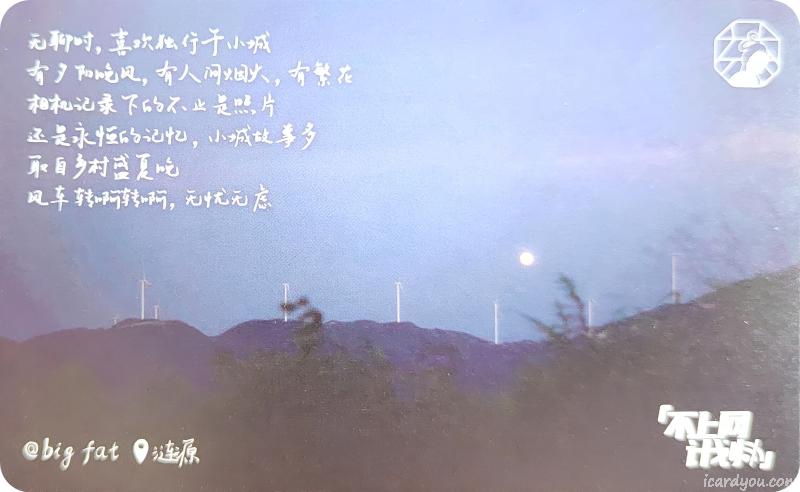 无聊时，喜欢独行于小城
有夕阳晚风，有人间烟火，有繁花
相机记录下的不止是照片
还是永恒的记忆，小城故事多
取自乡村盛夏晚
风车转啊转啊，无忧无虑
@big fat 涟源
「不上网
icardyou.com